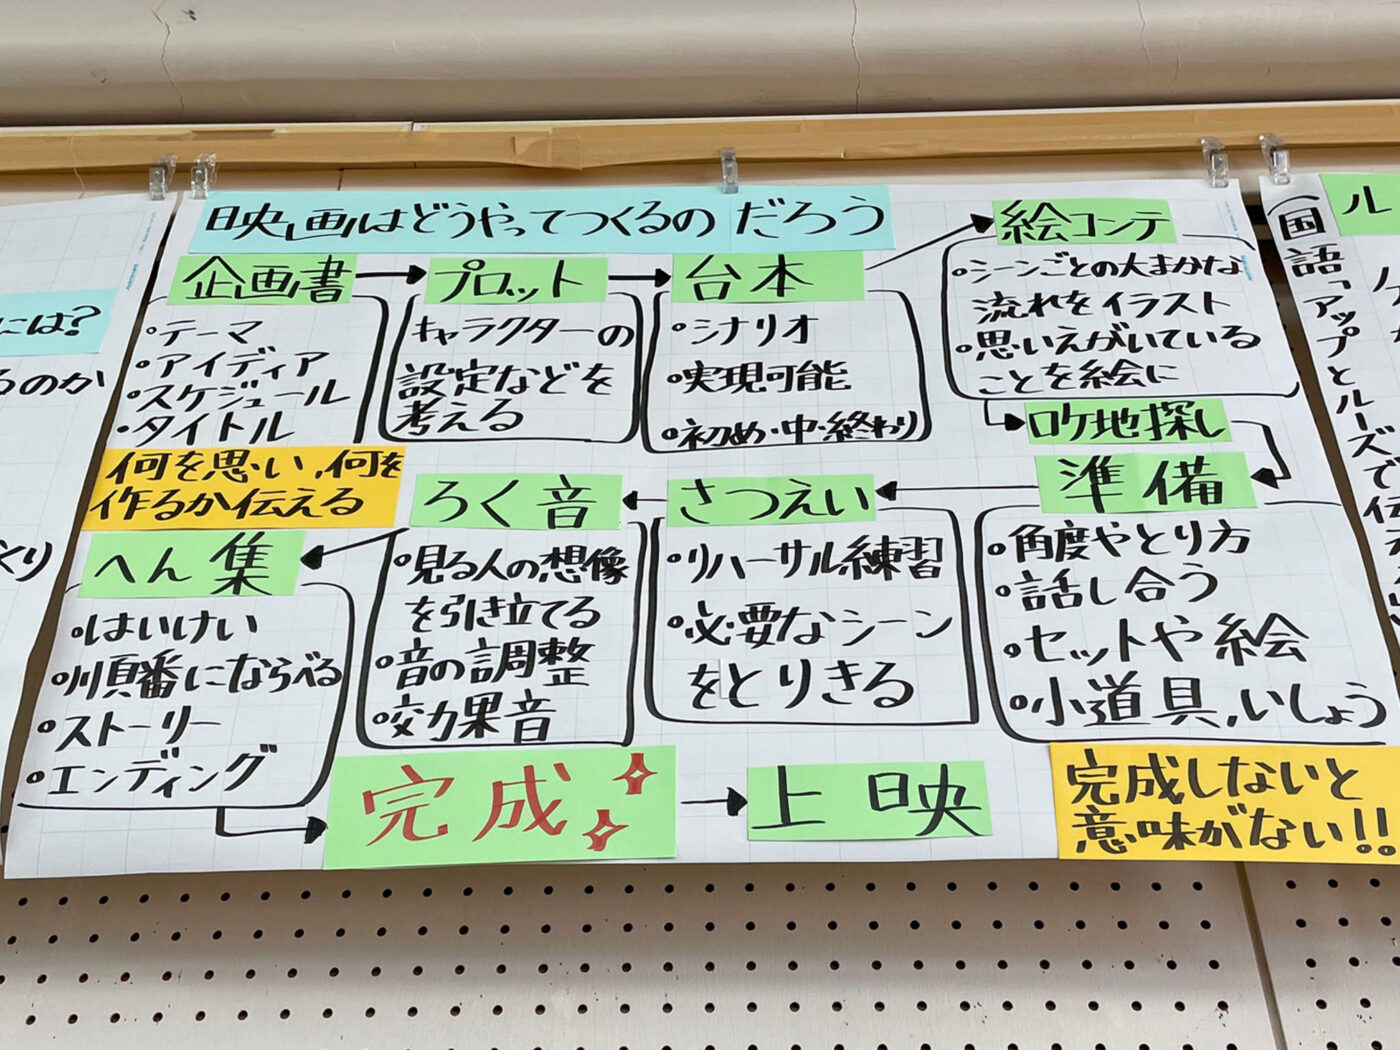 映画はどうやってつくるのだろう
企画書
・テーマ
・アイディア
・スケジュール
・タイトル
何を思い、何を
作るか伝える
プロット
キャラクターの
設定などを
考える
台本
・シナリオ
・実現可能
・初め・中・終わり
絵コンテ
・シーンごとの大まかな
流れをイラスト
・思いえがいている
ことを絵に
ロケ地探し
準備
・角度やとり方
・話し合う
・セットや絵
・小道具、いしょう
さつえい
・リハーサル練習
・必要なシーン
をとりきる
ろく音
・見る人の想像
を引き立てる
・音の調整
・効果音
へん集
・はいけい
・順番にならべる
・ストーリー
・エンディング
完成
上映
完成しないと
意味がない!!
には?
るのか
国語「アップとルーズで伝
ル